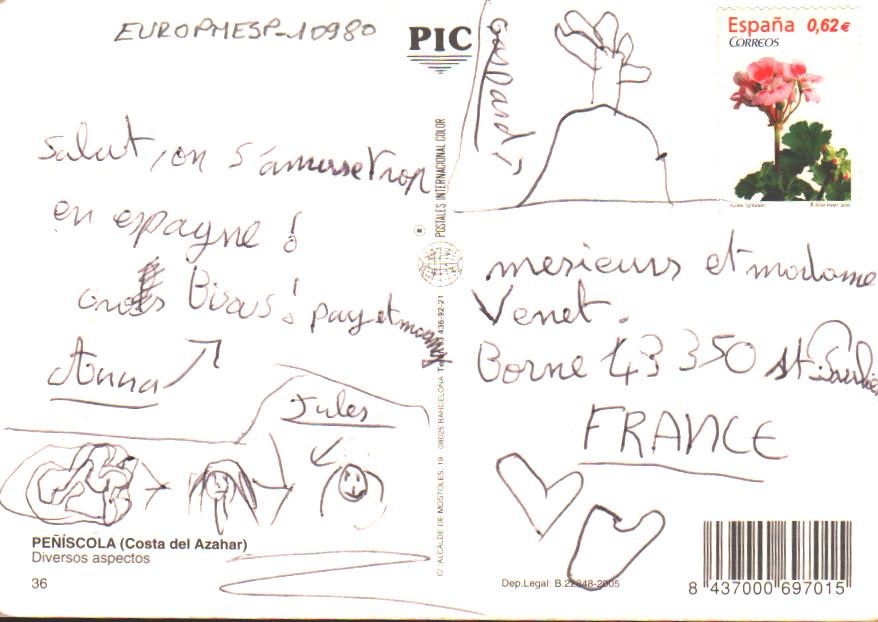 EUROPMESP-10980
PIC
España 0,62€
CORREOS
Gaspard
salut, on s'amuse trop
en espagne !
gros Bisous ! papy et mamy
Anna
Jules
mesieurs et madame
Venet.
Borne 43 350 st
FRANCE
POSTALES INTERNACIONAL COLOR
®
C/ ALCALDE DE MOSTOLES, 19 08025 BARCELONA 436-92-21
PEÑÍSCOLA (Costa del Azahar)
Diversos aspectos
36
Dep.Legal: B.22848-2005
8 437000 697015